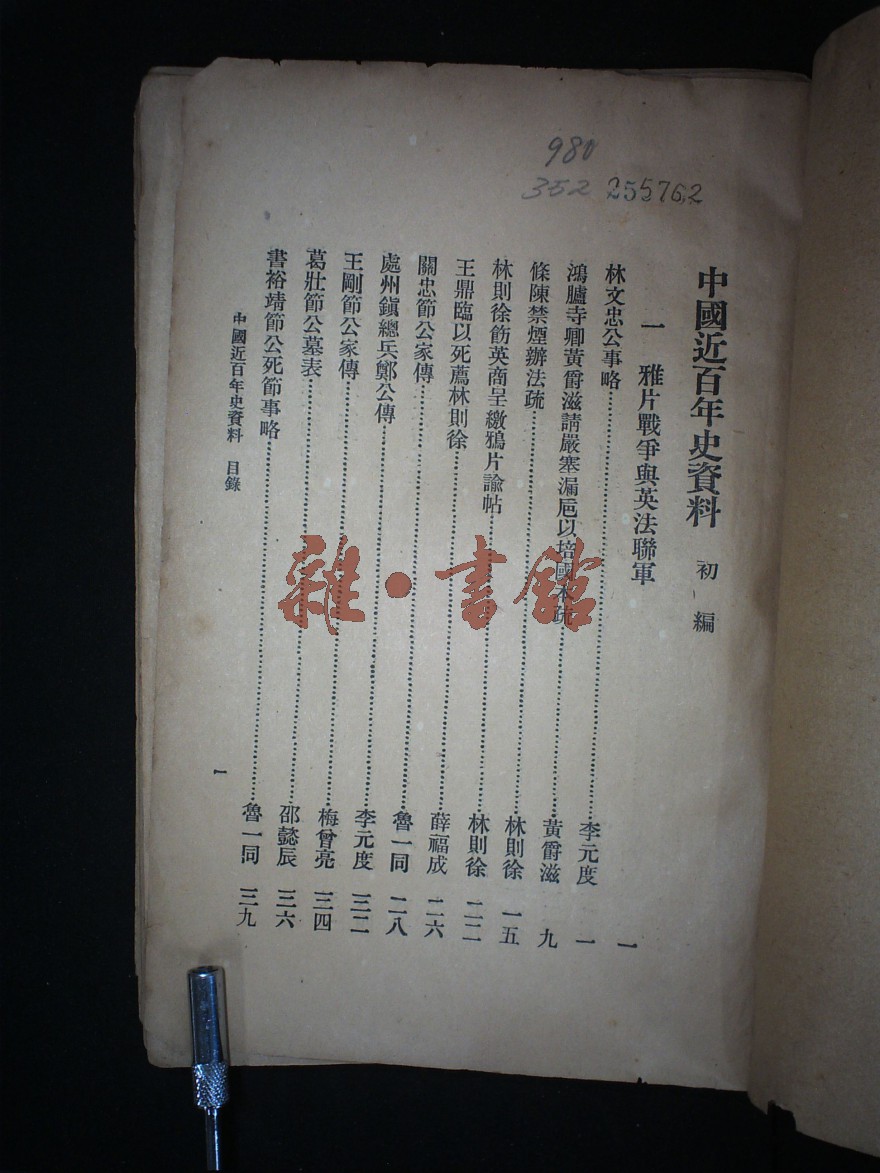 980
352 255762
中國近百年史資料 初編
一 雅片戰爭與英法聯軍 一
林文忠公事略…………李元度 一
鴻臚寺卿黃爵滋請嚴塞漏巵以培國本疏…………黃爵滋 九
條陳禁煙辦法疏…………林則徐 一五
林則徐飭英商呈繳鴉片諭帖…………林則徐 二二
王鼎臨以死薦林則徐…………薛福成 二六
關忠節公家傳…………魯一同 二八
處州鎮總兵鄭公傳…………李元度 三二
王剛節公家傳…………梅曾亮 三四
葛壯節公墓表…………邵懿辰 三六
書裕靖節公死節事略…………魯一同 三九
中國近百年史資料 目錄 一
雜·書館